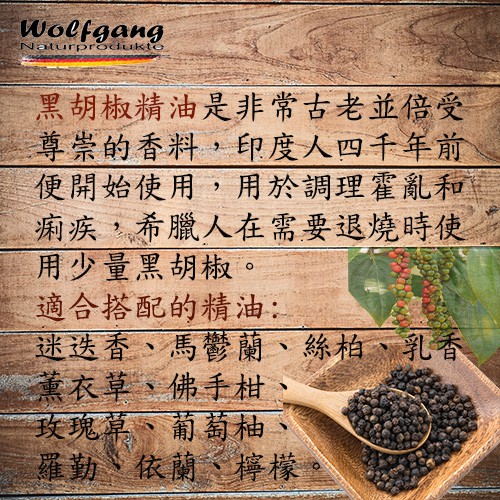 Wolfgang
Naturprodukte
黑胡椒精油是非常古老並倍受
尊崇的香料，印度人四千年前
便開始使用，用於調理霍亂和
痢疾，希臘人在需要退燒時使
用少量黑胡椒。
適合搭配的精油:
迷迭香、馬鬱蘭、絲柏、乳香
薰衣草、佛手柑、
玫瑰草、葡萄柚、
羅勒、依蘭、檸檬。